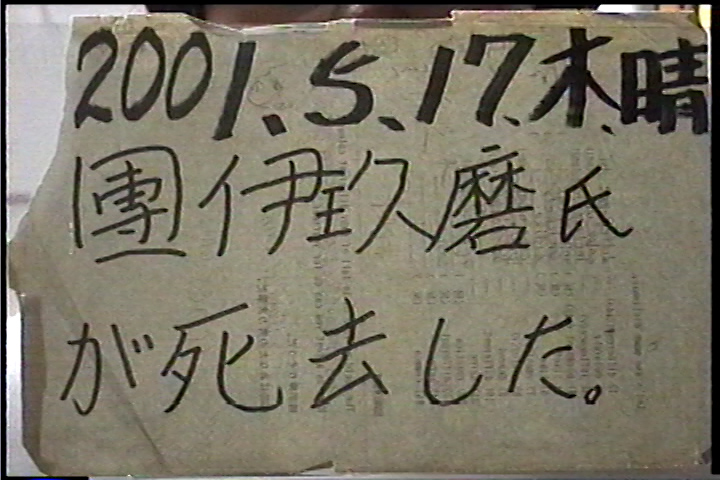 2001.5.17.木.晴
團伊玖磨氏
が死去した。